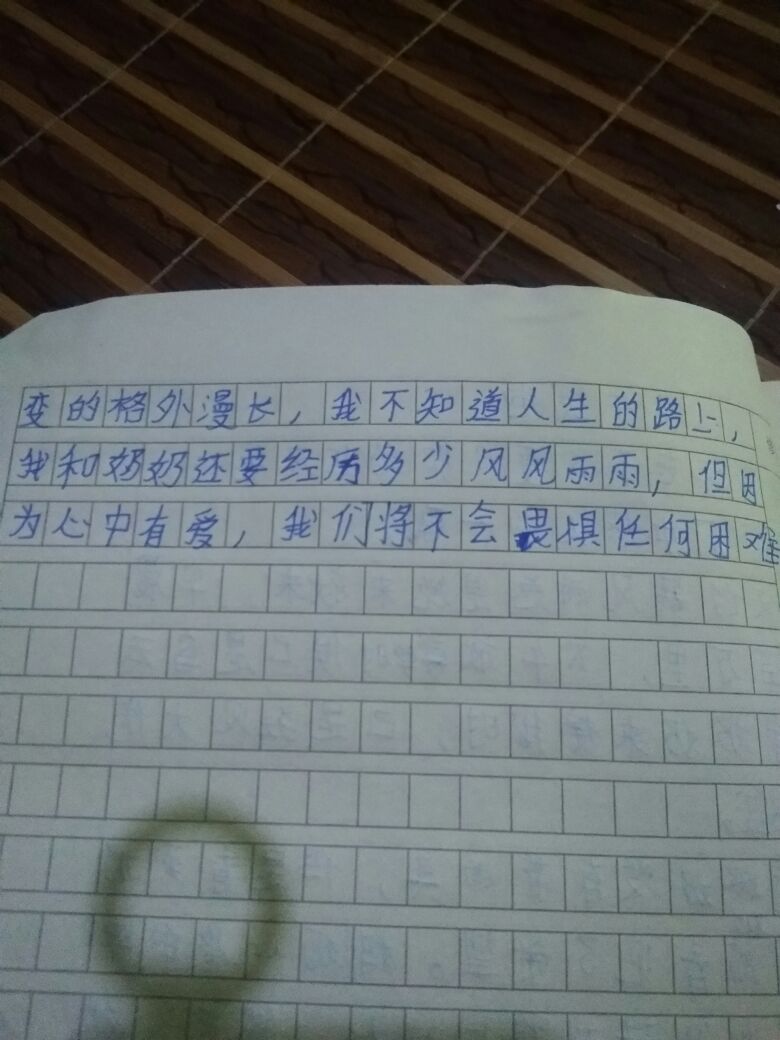 变的格外漫长，我不知道人生的路上，
我和奶奶还要经历多少风风雨雨，但因
为心中有爱，我们将不会畏惧任何困难